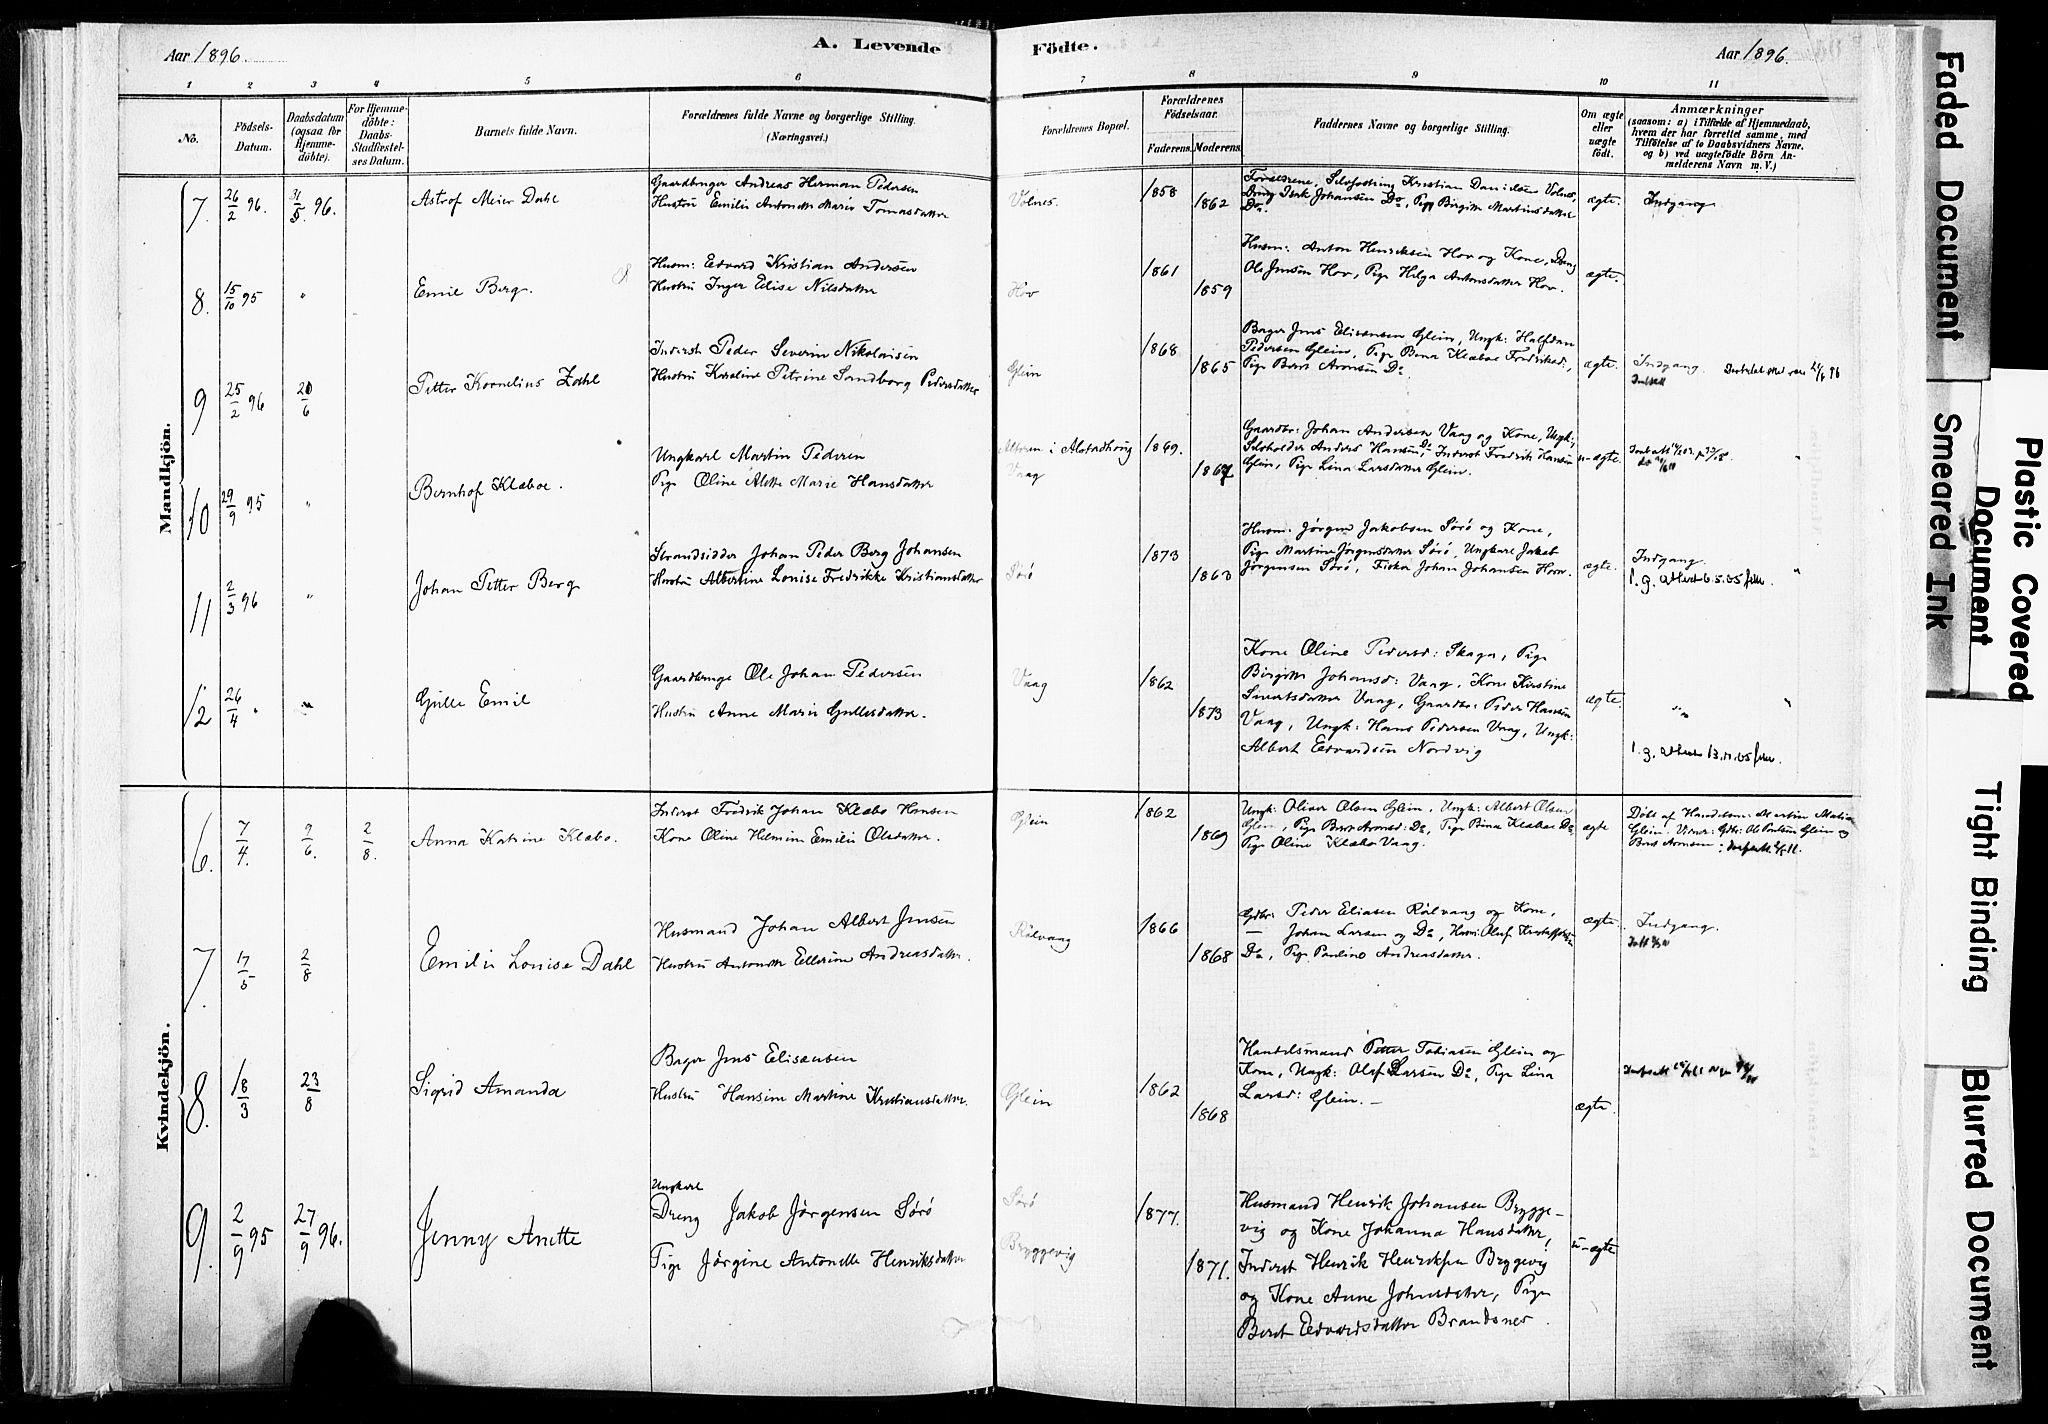 Aar 1896.
A. Levende
Födte.
Aar 1896.
1 2 3 4 5 6 7 8 9 10 11
Nô.
Födsels-Datum.
Daabsdatum (ogsaa for Hjemmedöbte).
For Hjemmedöbte: Daabs-Stadfæstelses Datum.
Barnets fulde Navn.
Forældrenes fulde Navne og borgerlige Stilling.
(Næringsvei.)
Forældrenes Bopæl.
Forældrenes Födselsaar.
Faderens. Moderens.
Faddernes Navne og borgerlige Stilling.
Om ægte eller uægte födt.
Anmærkninger
(saasom: a) i Tilfælde af Hjemmedaab, hvem der har forrettet samme, med Tilföielse af to Daabsvidners Navne, og b) ved uægtefödte Börn Anmelderens Navn m. V.)
Mandkjön.
7. 26/2 96. 31/5 96. Astrof Meier Dahl
Gaardbruger Andreas Herman Pedersen
Hustru Emilie Antonette Marie Tomasdatter
Volnes. 1858 1862
Forældrene, Kristian Danielsen Volnes,
Dreng Isak Johansen Do, Pige Birgitte Martinsdatter
Do.
ægte. Indgang
8. 15/10 95 " Emil Berg.
Husm: Edvard Kristian Andersen
Hustru Inger Elise Nilsdatter
Hov 1861 1859
Husm: Anton Henriksen Hov og Kone, Dreng
Ole Jensen Hov, Pige Helga Antonsdatter Hov.
ægte.
9 25/2 96 20/6 Petter Kornelius Zahl
Inderst Peder Severin Nikolaisen
Hustru Karoline Petrine Sandborg Pedersdatter
Glein 1868 1865
Bager Jens Elisæusen Glein, Ungk: Halfdan
Pedersen Glein, Pige Bina Klæboe Fredriksd:,
Pige Berit Aronsen Do
ægte. Indgang.
10 29/9 95 " Bernhof Klæboe.
Ungkarl Martin Pedersen
Pige Oline Alette Marie Hansdatter
Alteren i Alstadhoug
Vaag 1869. 1867
Gaardbr: Johan Andersen Vaag og Kone, Ungk:,
Selveholder Anders Hansen Do, Inderst Fredrik Hansen
Glein, Pige Lina Larsdatter Glein.
u-ægte.
11 2/3 96 " Johan Petter Berg
Strandsidder Johan Peder Berg Johansen
Hustru Albertine Lovise Fredrikke Kristiansdatter
Sørø 1873 1863
Husm: Jörgen Jakobsen Sørø og Kone,
Pige Martine Jörgensdatter Sørø, Ungkarl Jakob
Jörgensen Sørø, Fisker Johan Johansen Horn.
ægte. Indgang. "
l. g. attest 6.5.05
12 26/4 " " Gulle Emil
Gaardbruger Ole Johan Pedersen
Hustru Anne Marie Gullesdatter.
Vaag 1862 1873
Kone Oline Pedersd: Skaga, Pige
Birgitte Johansd: Vaag, Kone Kirstine
Sivertsdatter Vaag, Gaardbr: Peder Hansen
Vaag, Ungk: Hans Pedersen Vaag, Ungk:
Albert Edvardsen Nordvig
ægte. "
l. g. attest 13.11.05
Kvindekjön.
6. 7/4. 9/6. 2/8. Anna Katrine Klæbo.
Inderst Fredrik Johan Klæbo Hansen
Kone Oline Helmine Emilie Olsdatter.
Glein 1862 1869
Ungk: Oliver Olsen Glein, Ungk: Albert Olsen
Glein, Pige Berit Aronsd: Do, Pige Bina Klæboe Do,
Pige Oline Klæbo Vaag.
ægte
Döbt af Handelsm: Martin
Glein. Vidner: Gdbr: Ole Glein og
Berit Aronsen.
7. 17/5 2/8 Emilie Lovise Dahl
Husmand Johan Albert Jensen
Hustru Antonette Ellerine Andreasdatter.
Rölvaag 1866 1868
Gdbr: Peder Eliasen Rölvaag og Kone,
— Johan Larsen og Do, Husm: Oluf Kristoffersen
Do, Pige Pauline Andreasdatter.
ægte. Indgang.
8. 18/3 23/8 Sigrid Amanda
Bager Jens Elisæusen
Hustru Hansine Martine Kristiansdatter.
Glein 1862 1868
Handelsmand Petter Tobiasen Glein og
Kone, Ungk: Oluf Larsen Do, Pige Lina
Larsd: Glein. —
ægte.
9. 2/9 95 27/9 96. Jenny Anette
Ungkarl
Dreng Jakob Jörgensen Sørø
Pige Jörgine Antonette Henriksdatter
Sørø
Bryggevig 1877. 1871.
Husmand Henrik Johansen Brygge-
vig og Kone Johanna Hansdatter,
Inderst Henrik Henriksen Bryggevig
og Kone Anne Johnsdatter, Pige
Berit Edvardsdatter Brandsnes.
u-ægte
Faded Document
Smeared Ink
Plastic Covered Document
Tight Binding
Blurred Document